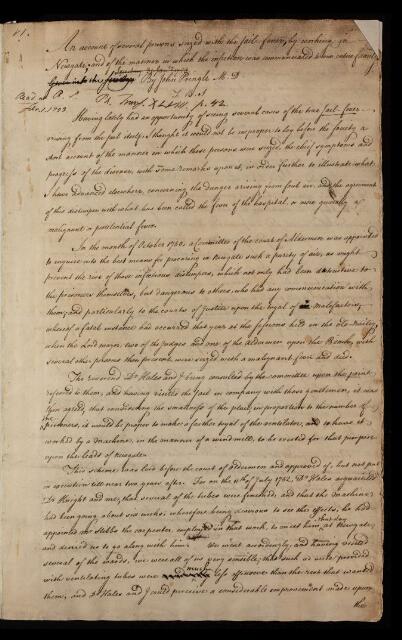 An account of several persons seized with the Jail-fever, by working in
Newgate; and of the manner in which the infection was communicated to one entire family
By John Pringle M.D
F. R. S
Read at R. S.
Ph. Trans XLVIII. p. 42
Having lately had an opportunity of seeing several cases of the true Jail-fever
arising from the jail itself, I thought it would not be improper to lay before the society a
short account of the manner in which these persons were seized, the chief symptoms and
progress of the disease, with some remarks upon it, in order further to illustrate what
I have advanced elsewhere, concerning the danger arising from foul air, and the agreement
of this distemper with what has been called the fever of the hospital, or more generally a
malignant or pestilential fever.
In the month of October 1750, a Committee of the court of Aldermen was appointed
to enquire into the best means for procuring in Newgate such a purity of air, as might
prevent the rise of those infectious distempers, which not only had been destructive to
the prisoners themselves, but dangerous to others, who had any communication with
them; and particularly to the courts of Justice upon the tryal of Malefactors;
whereof a fatal instance had occurred that year at the sessions held in the Old Bailey
when the Lord mayor, two of the Judges and one of the Aldermen upon the Bench, with
several other persons then present, were seized with a malignant fever and died.
The reverend Dr Hales and I being consulted by the committee upon the point
referred to them, and having visited the Jail in company with those gentlemen, it was
then agreed, that considering the smallness of the place, in proportion to the number of
the prisoners, it would be proper to make a further tryal of the ventilator, and to have it
worked by a machine, in the manner of a windmill, to be erected for that purpose
upon the leads of Newgate
This scheme was laid before the court of Aldermen and approved of, but not put
in execution till near two years after. For on the 11th of July 1752, Dr Hales acquainted
Dr Knight and me, that several of the tubes were finished, and that the Machine
had been going about six weeks; wherefore being desirous to see the effects, he had
appointed Mr Stibbs the carpenter employed in that work, to meet him that day at Newgate,
and desired us to go along with him. We went accordingly, and having visited
several of the wards, we were all of us very sensible, that such as were provided
with ventilating tubes were much less offensive than the rest that wanted
them; and Dr Hales and I could perceive a considerable improvement made upon
the